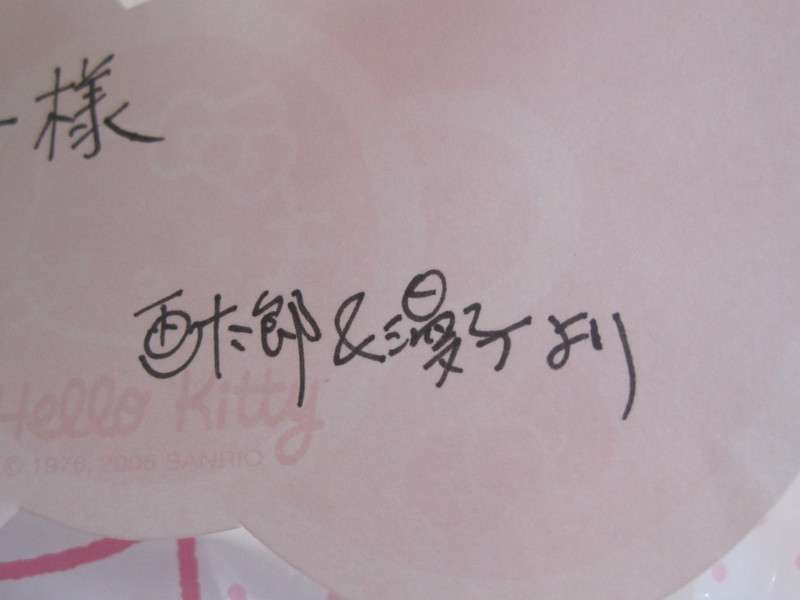 様
画太郎&漫子より
Hello Kitty
© 1976, 2005 SANRIO